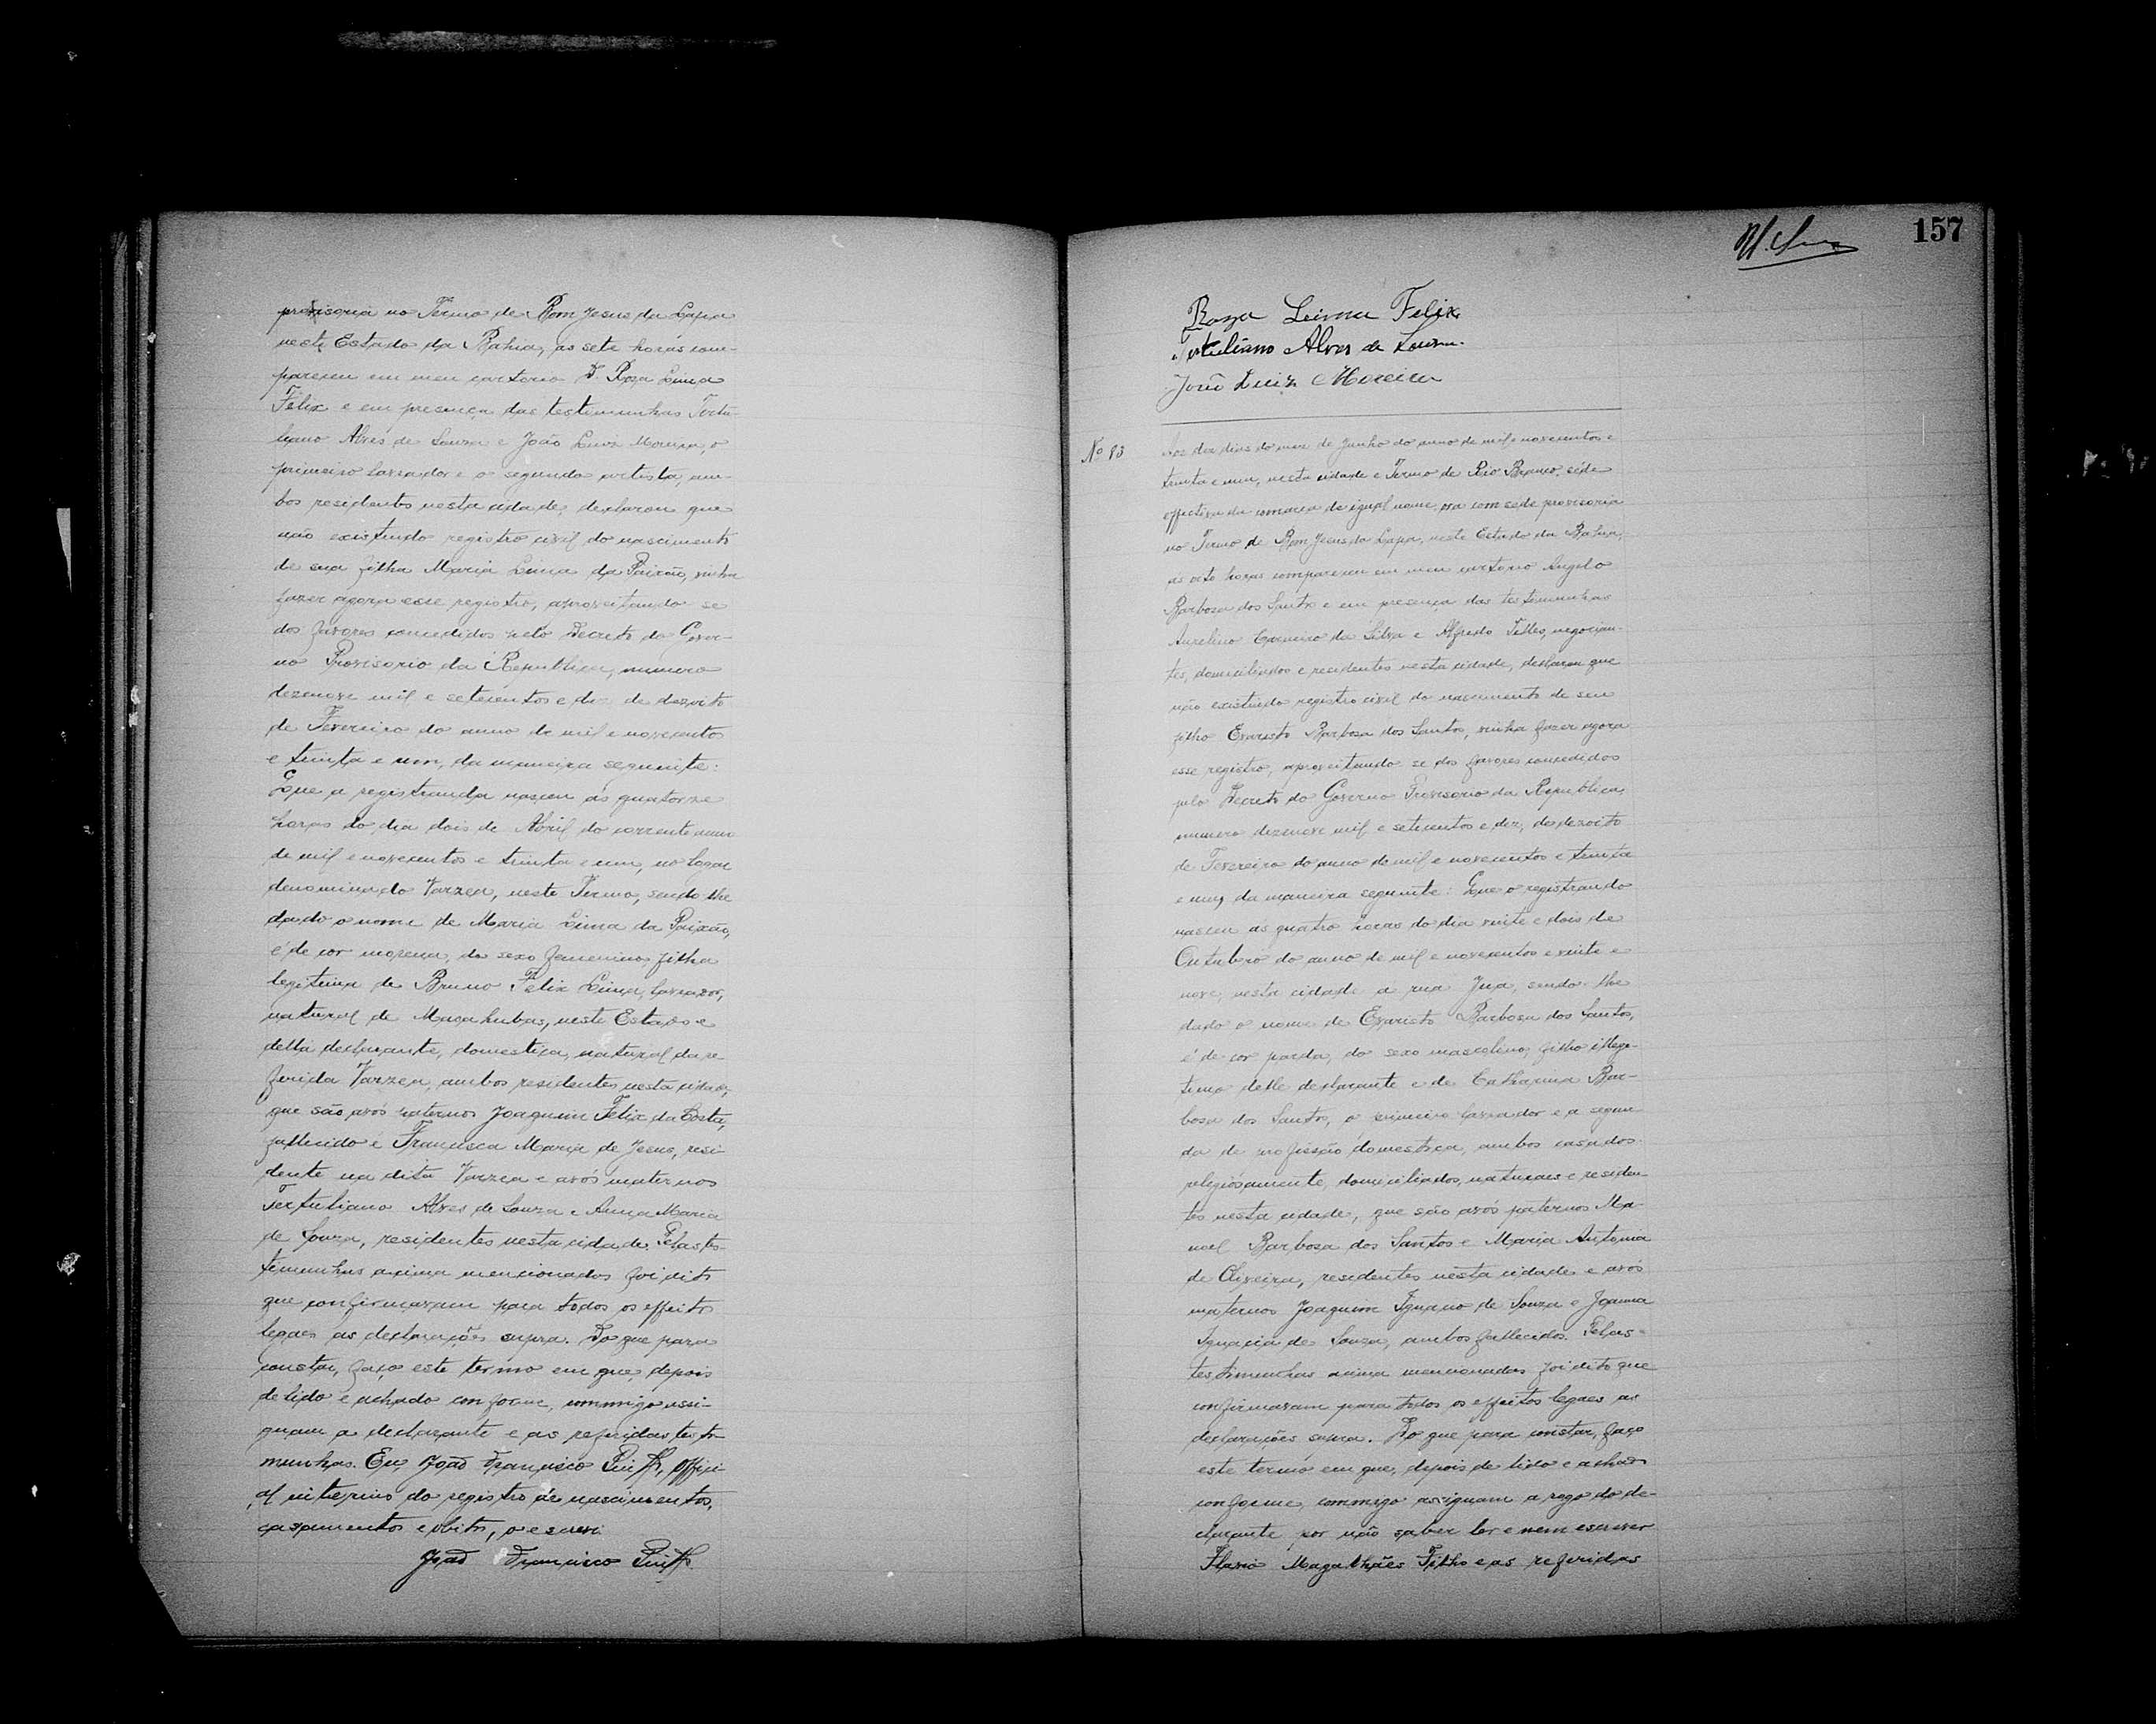 provisoria no Termo de Bom Jesus da Lapa
neste Estado da Bahia, as sete horas com-
pareceu em meu cartorio D. Roza Lima
Felix e em presença das testimunhas Tertu-
liano Alves de Souza e João Luiz Moreira, o
primeiro lavrador e o segundo artista, am-
bos residentes nesta cidade, declarou que
não existindo registro civil do nascimento
de sua filha Maria Lima da Paixão, vinha
fazer agora esse registro, aproveitando se
dos favores concedidos pelo Decreto do Gover-
no Provisorio da Republica, numero
dezenove mil e setecentos e dez de dezoito
de Fevereiro do anno de mil e novecentos
e trinta e um, da maneira seguinte:
Que a registranda nasceu ás quatorze
horas do dia dois de Abril do corrente anno
de mil e novecentos e trinta e um, no logar
denominado Varzea, neste Termo, sendo lhe
dado o nome de Maria Lima da Paixão,
é de cor morena, do sexo femenino, filha
legitima de Bruno Felix Lima, lavrador,
natural de Macahubas, neste Estado e
della declarante, domestica, natural da re-
ferida Varzea, ambos residentes nesta cidade,
que são avós paternos Joaquim Felix da Costa,
fallecido e Francisca Maria de Jesus, resi-
dente na dita Varzea e avós maternos
Tertuliano Alves de Souza e Anna Maria
de Souza, residentes nesta cidade. Pelas tes-
timunhas acima mencionadas foi dito
que confirmavam para todos os effeitos
legaes as declarações supra. Do que para
constar, faço este termo em que depois
de lido e achado conforme, commigo assi-
gnam a declarante e as referidas testi-
munhas. Eu, João Francisco, Offici-
al interino do registro de nascimentos,
casamentos e obitos, o escrevi
João Francisco
157
Roza Leima Felix
Tertuliano Alves de Souza.
João Luiz Moreira
Nº 83
Aos dez dias do mez de Junho do anno de mil e novecentos e
trinta e um, nesta cidade e Termo de Rio Branco, séde
effectiva da comarca de igual nome, ora com sede provisoria
no Termo de Bom Jesus da Lapa, neste Estado da Bahia,
as oito horas compareceu em meu cartorio Angelo
Barbosa dos Santos e em presença das testimunhas
Aurelino Carneiro da Silva e Alfredo Telles, negocian-
tes, domiciliados e residentes nesta cidade, declarou que
não existindo registro civil do nascimento de seu
filho Evaristo Barbosa dos Santos, vinha fazer agora
esse registro, aproveitando se dos favores concedidos
pelo Decreto do Governo Provisorio da Republica,
numero dezenove mil e setecentos e dez, de dezoito
de Fevereiro do anno de mil e novecentos e trinta
e um, da maneira seguinte: Que o registrando
nasceu as quatro horas do dia vinte e dois de
Outubro do anno de mil e novecentos e vinte e
nove, nesta cidade a rua, sendo-lhe
dado o nome de Evaristo Barbosa dos Santos,
é de cor parda, do sexo masculino, filho illegi-
timo delle declarante e de Catharina Bar-
bosa dos Santos, o primeiro lavrador e a segun-
da de profissão domestica, ambos casados
religiosamente, domiciliados, naturaes e residen-
tes nesta cidade, que são avós paternos Ma-
noel Barbosa dos Santos e Maria Antonia
de Oliveira, residentes nesta cidade e avós
maternos Joaquim Ignacio de Souza e Joanna
Ignacia de Souza, ambos fallecidos. Pelas
testimunhas acima mencionadas foi dito que
confirmavam para todos os effeitos legaes as
declarações supra. Do que para constar, faço
este termo em que, depois de lido e achado
conforme, commigo assignam a rogo do de-
clarante por não saber ler e nem escrever
Flavio Magalhães Filho e as referidas